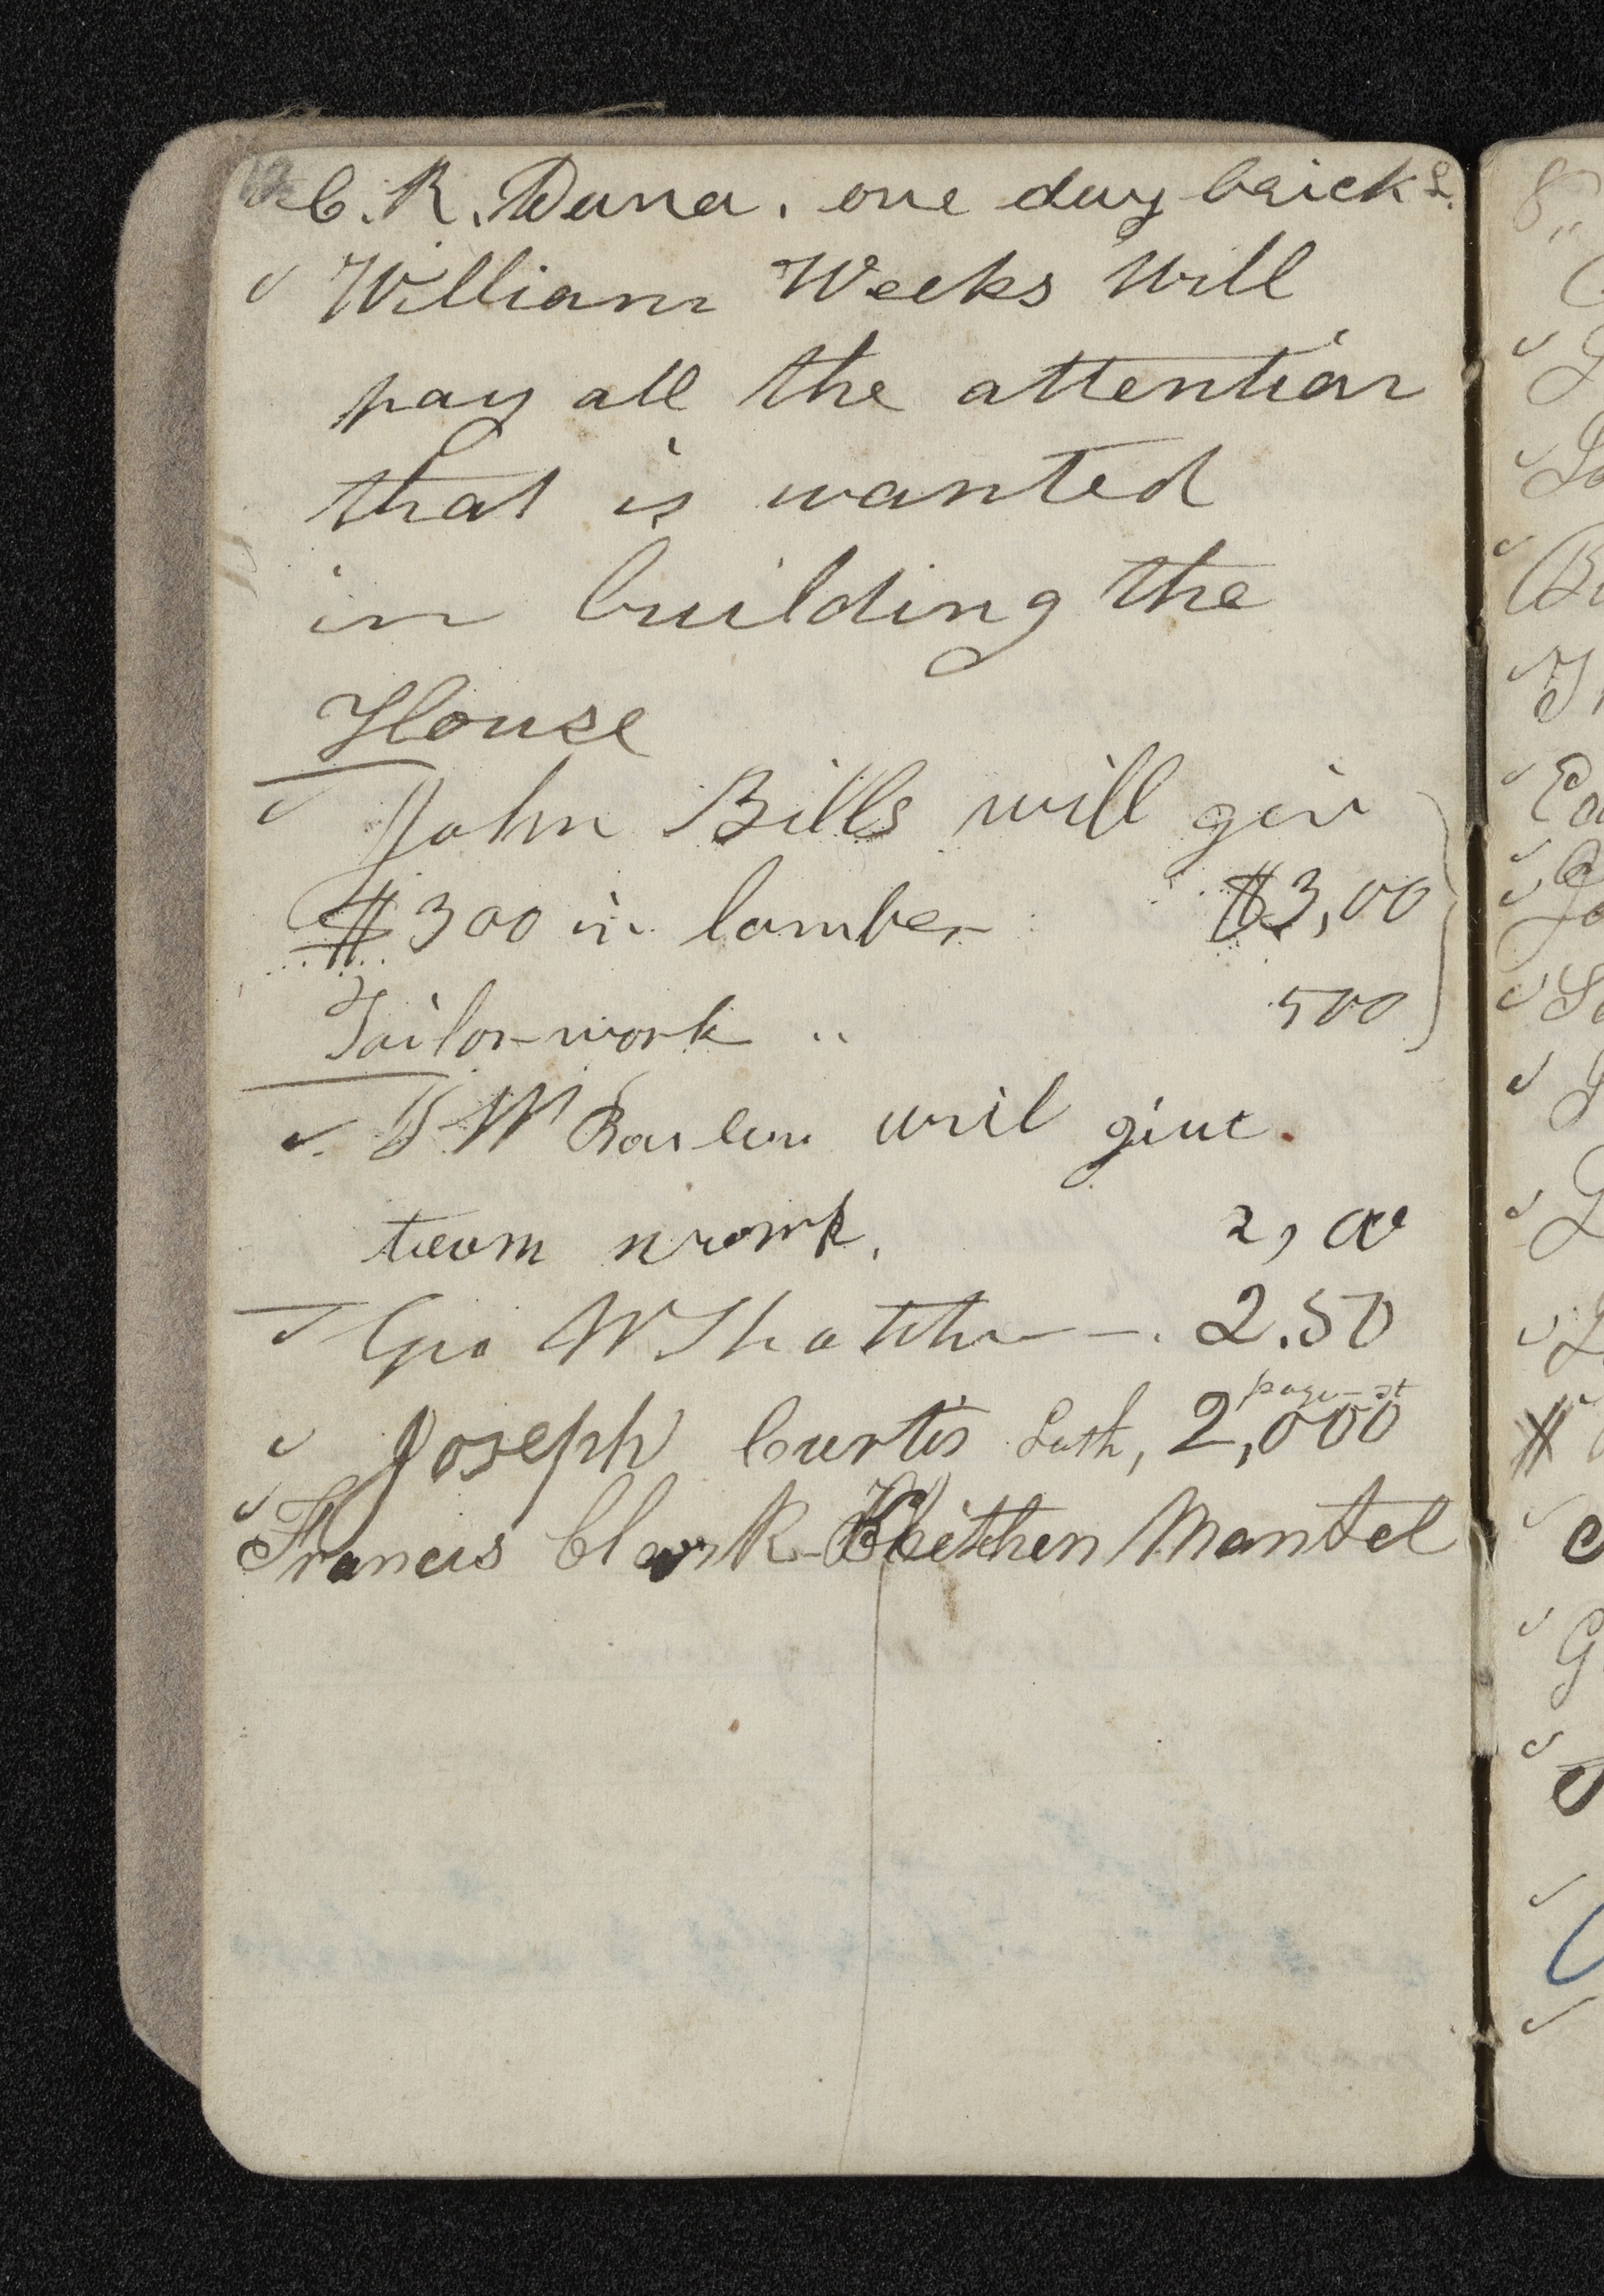 C. R. Dana. one day brick L.
✓ William Weeks Will
pay all the attention
that is wanted
in building the
House
✓ John Bills will giv
$300 in lomber $3,00
Tailor-work .. 500
✓ W will give.
team work. 2,00
✓ Geo W Thatcher —. 2.50
✓ Joseph Curtis Lath, 2,000
✓ Francis Clark - Kitchen Mantel
8,,